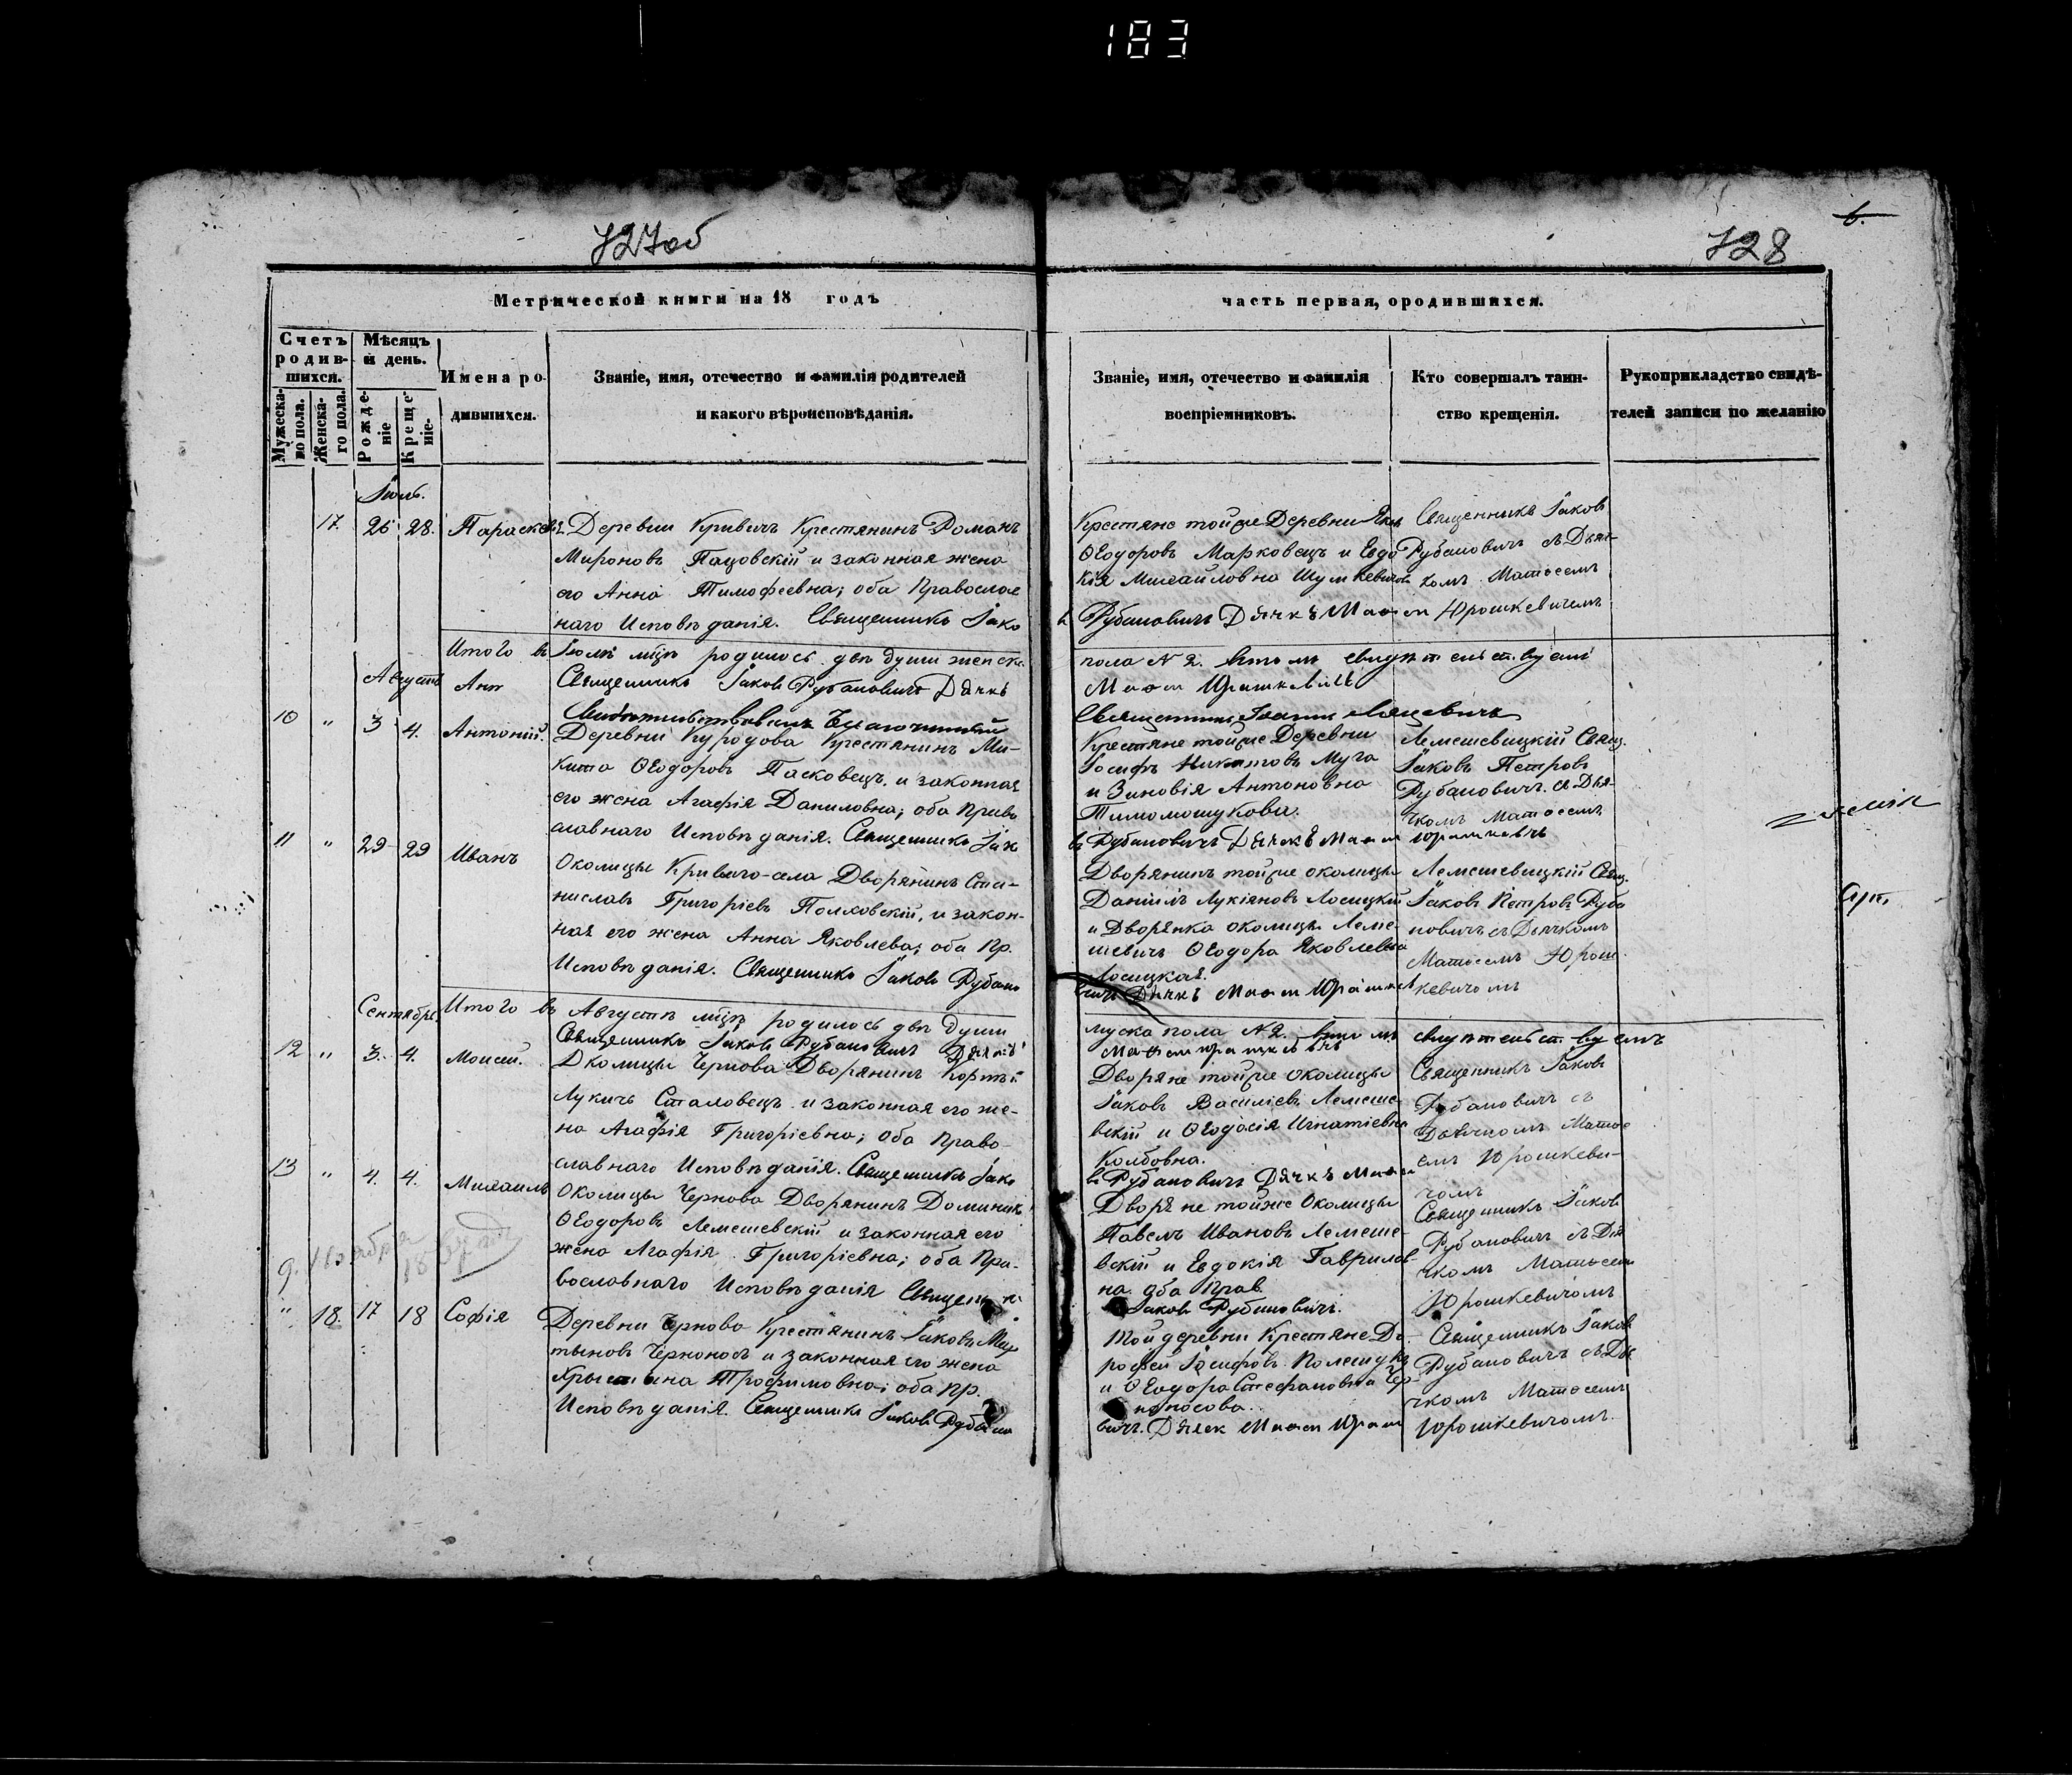 183
727об
728
6.
Метрической книги на 18 годъ
часть первая, ородившихся.
Счетъ родив-шихся.
Мужеска-го пола.
Женска-го пола.
Мѣсяцъ и день.
Рожде-ніе
Креще-ніе.
Имена ро-
дившихся.
Званіе, имя, отечество и фамилія родителей
и какого вѣроисповѣданія.
Званіе, имя, отечество и фамилія
воспріемниковъ.
Кто совершалъ таин-
ство крещенія.
Рукоприкладство свидѣ-
телей записи по желанію
Іюль.
17. 26 28. Параскева
Деревни Кривичъ Крестянинъ Романъ
Мироновъ Пацовскій и законная жена
его Анна Тимофеевна; оба Православ
наго Исповѣданія. Священникъ Іако
Крестяне тойже Деревни Яковъ
Ѳеодоровъ Марковецъ и Евдо
кія Михайловна Шумкевичова
в Рубановичъ Дячкъ
Священникъ Іаковъ
Рубановичъ съ Дьяч-
комъ Матѳеемъ
Юрошкевичемъ
Итого въ Іюлѣ мцѣ родилось двѣ души женска
пола № 2. Въ томъ свидѣтельствуемъ
Священникъ Іаковъ Рубановичъ Дячкъ
Августъ
Священникъ Іоаннъ
10 " 3 4. Антоній.
Деревни Куродова Крестянинъ Ми-
кита Ѳеодоровъ Пасковецъ и законная
его жена Агафія Даниловна; оба Право
славнаго Исповѣданія. Священникъ Іак
Крестяне тойже Деревни
Іосифъ Никитовъ Муга
и Зиновія Антоновна
Тимошукова.
въ Рубановичъ Дячекъ
Лемешевицкій Свящ.
Іаковъ Петровъ
Рубановичъ съ Дья-
чкомъ Матѳеемъ
11 " 29 29 Иванъ
Околицы Кривчого-села Дворянинъ Ста-
ниславъ Григоріевъ Полховскій, и закон-
ная его жена Анна Яковлева; оба Пр.
Исповѣданія. Священникъ Іаковъ Рубано
Дворянинъ тойже околицы
Даніилъ Лукіяновъ Лосицкій
и Дворянка околицы Леме-
шевичъ Ѳеодора Яковлевна
Лосицкая.
вичъ Дячкъ
Лемешевицкій Свящ.
Іаковъ Петровъ Руба
новичъ съ Дьячкомъ
Матѳеемъ Юрош
кевичомъ
Итого въ Августѣ мцѣ родилось двѣ души
муска пола № 2. Въ томъ свидѣтельствуемъ
Священникъ Іаковъ Рубановичъ Дячкъ
Сентябрь.
12 " 3. 4. Моисей.
Околицы Чернова Дворянинъ
Лукичъ Сталовецъ и законная его же-
на Агафія Григоріевна; оба Право-
славнаго Исповѣданія. Священникъ Іако
Дворяне тойже околицы
Іаковъ Василіевъ Лемеше
вскій и Ѳеодосія Игнатіевна
Колбовна.
въ Рубановичъ Дячкъ
Священникъ Іаковъ
Рубановичъ съ
Дьячкомъ Матѳе
емъ Юрошкеви-
чомъ
13 " 4. 4. Михаилъ
Околицы Чернова Дворянинъ Доминик
Ѳеодоровъ Лемешевскій и законная его
жена Агафія Григоріевна; оба Пра-
вославнаго Исповѣданія Священ
Дворяне тойже Околицы
Павелъ Ивановъ Лемеше-
вскій и Евдокія Гаврилов
на оба Прав.
Іаковъ Рубановичъ.
Священникъ Іаковъ
Рубановичъ съ Дья
чкомъ Матѳеемъ
Юрошкевичомъ
" 18. 17 18 Софія
Деревни Черново Крестянинъ Іаковъ Мар
тыновъ Черноносъ и законная его жена
Крыстина Трофимовна; оба пр.
Исповѣданія. Священникъ Іаковъ Рубано
Той деревни Крестяне До-
рофей Іосифовъ Полещукъ
и Ѳеодора Стефановна Чер-
ноносова.
вичъ. Дячек
Священникъ Іаковъ
Рубановичъ съ Дья
чкомъ Матѳеемъ
Юрошкевичомъ.